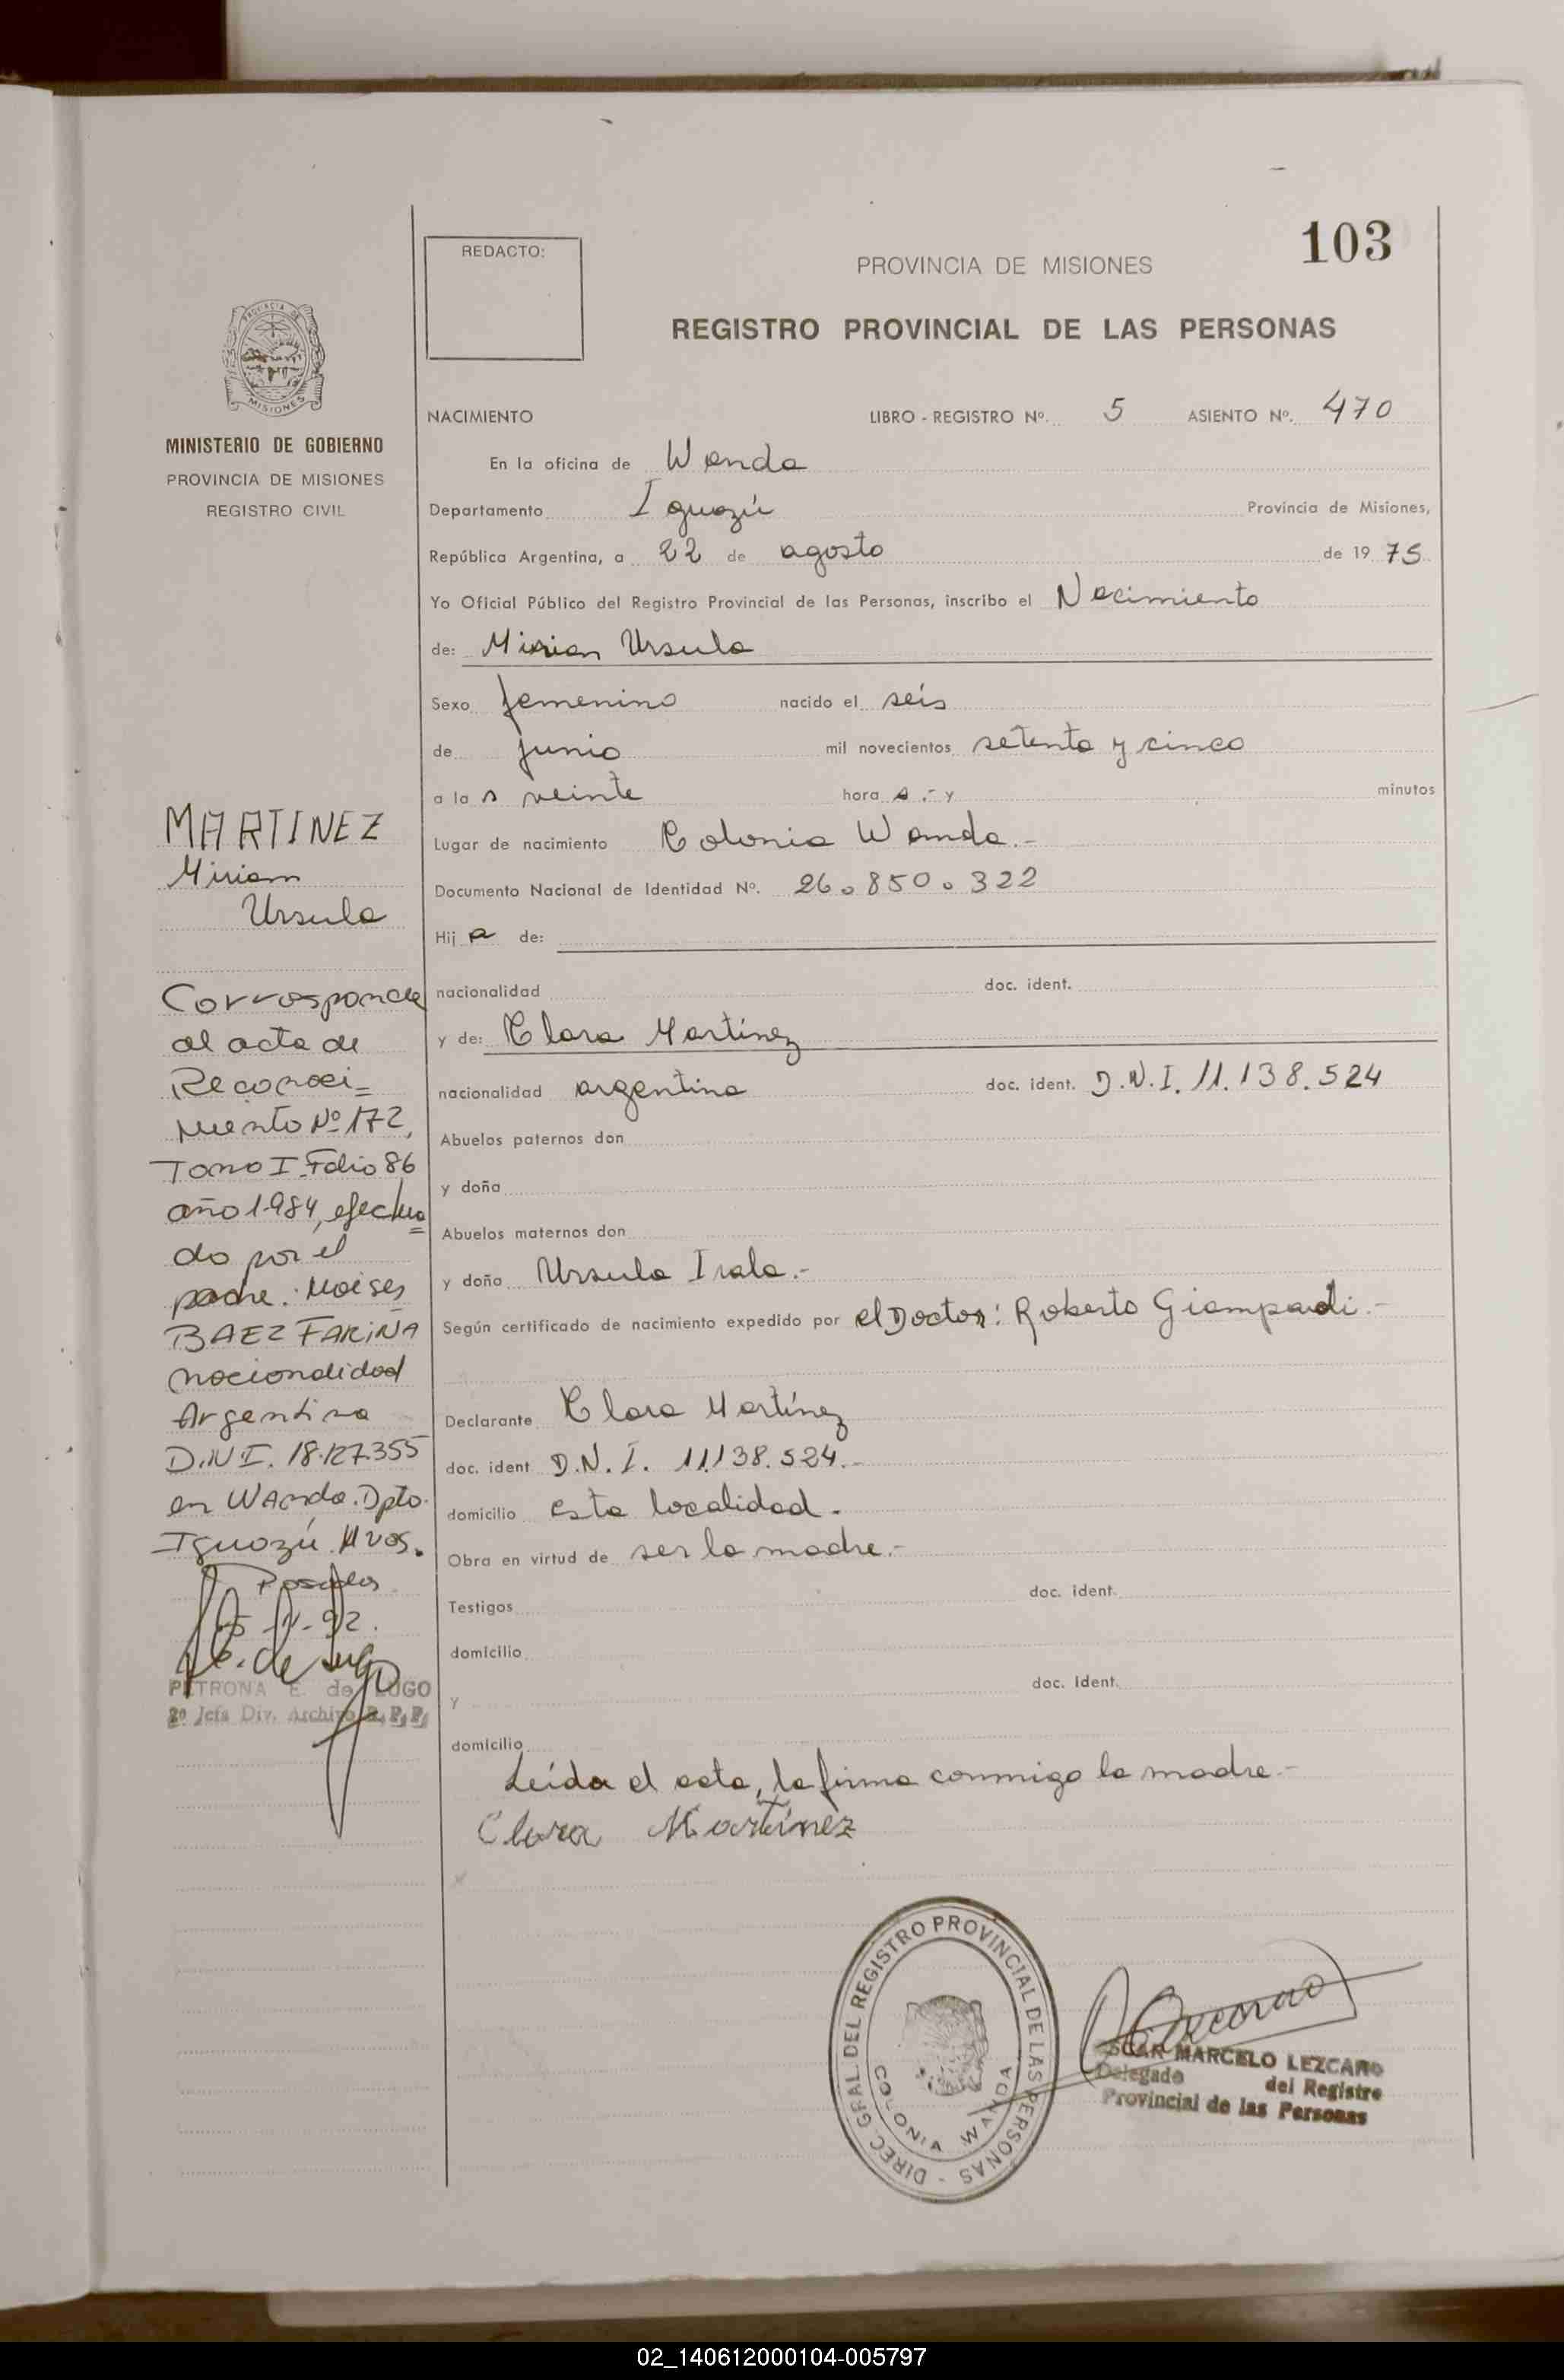 103
REDACTO:
PROVINCIA DE MISIONES
REGISTRO PROVINCIAL DE LAS PERSONAS
PROVINCIA DE
MISIONES
MINISTERIO DE GOBIERNO
PROVINCIA DE MISIONES
REGISTRO CIVIL
NACIMIENTO LIBRO - REGISTRO Nº. 5 ASIENTO Nº. 470
En la oficina de Wanda
Departamento Iguazú Provincia de Misiones,
República Argentina, a 22 de agosto de 19 75
Yo Oficial Público del Registro Provincial de las Personas, inscribo el Nacimiento
de: Mirian Ursula
Sexo femenino nacido el seis
de junio mil novecientos setenta y cinco
a la s veinte hora s.- y minutos
Lugar de nacimiento Colonia Wanda.-
Documento Nacional de Identidad Nº. 26.850.322
Hij a de:
nacionalidad doc. ident.
y de: Clara Martínez
nacionalidad argentina doc. ident. D.N.I. 11.138.524
Abuelos paternos don
y doña
Abuelos maternos don
y doña Ursula Irala.-
Según certificado de nacimiento expedido por el Doctor: Roberto
Declarante Clara Martínez
doc. ident D.N.I. 11.138.524.-
domicilio esta localidad.
Obra en virtud de ser la madre.-
Testigos doc. ident.
domicilio
y doc. Ident.
domicilio
Leída el acta, la firma conmigo la madre.-
Clara Martínez
MARTINEZ
Miriam
Ursula
Corresponde
al acta de
Reconoci=
miento Nº 172,
Tomo I. Folio 86
año 1.984, efectua
do por el
padre: Moises
BAEZ FARIÑA
nacionalidad
Argentina
D.N.I. 18.127.355
en Wanda. Dpto.
Iguazú. Mnes.
Posadas
PETRONA E. de LUGO
2º Jefa Div. Archivo R. P. P.
DIREC. GRAL. DEL REGISTRO PROVINCIAL DE LAS PERSONAS -
COLONIA WANDA
OSCAR MARCELO LEZCANO
Delegado del Registro
Provincial de las Personas
02_140612000104-005797